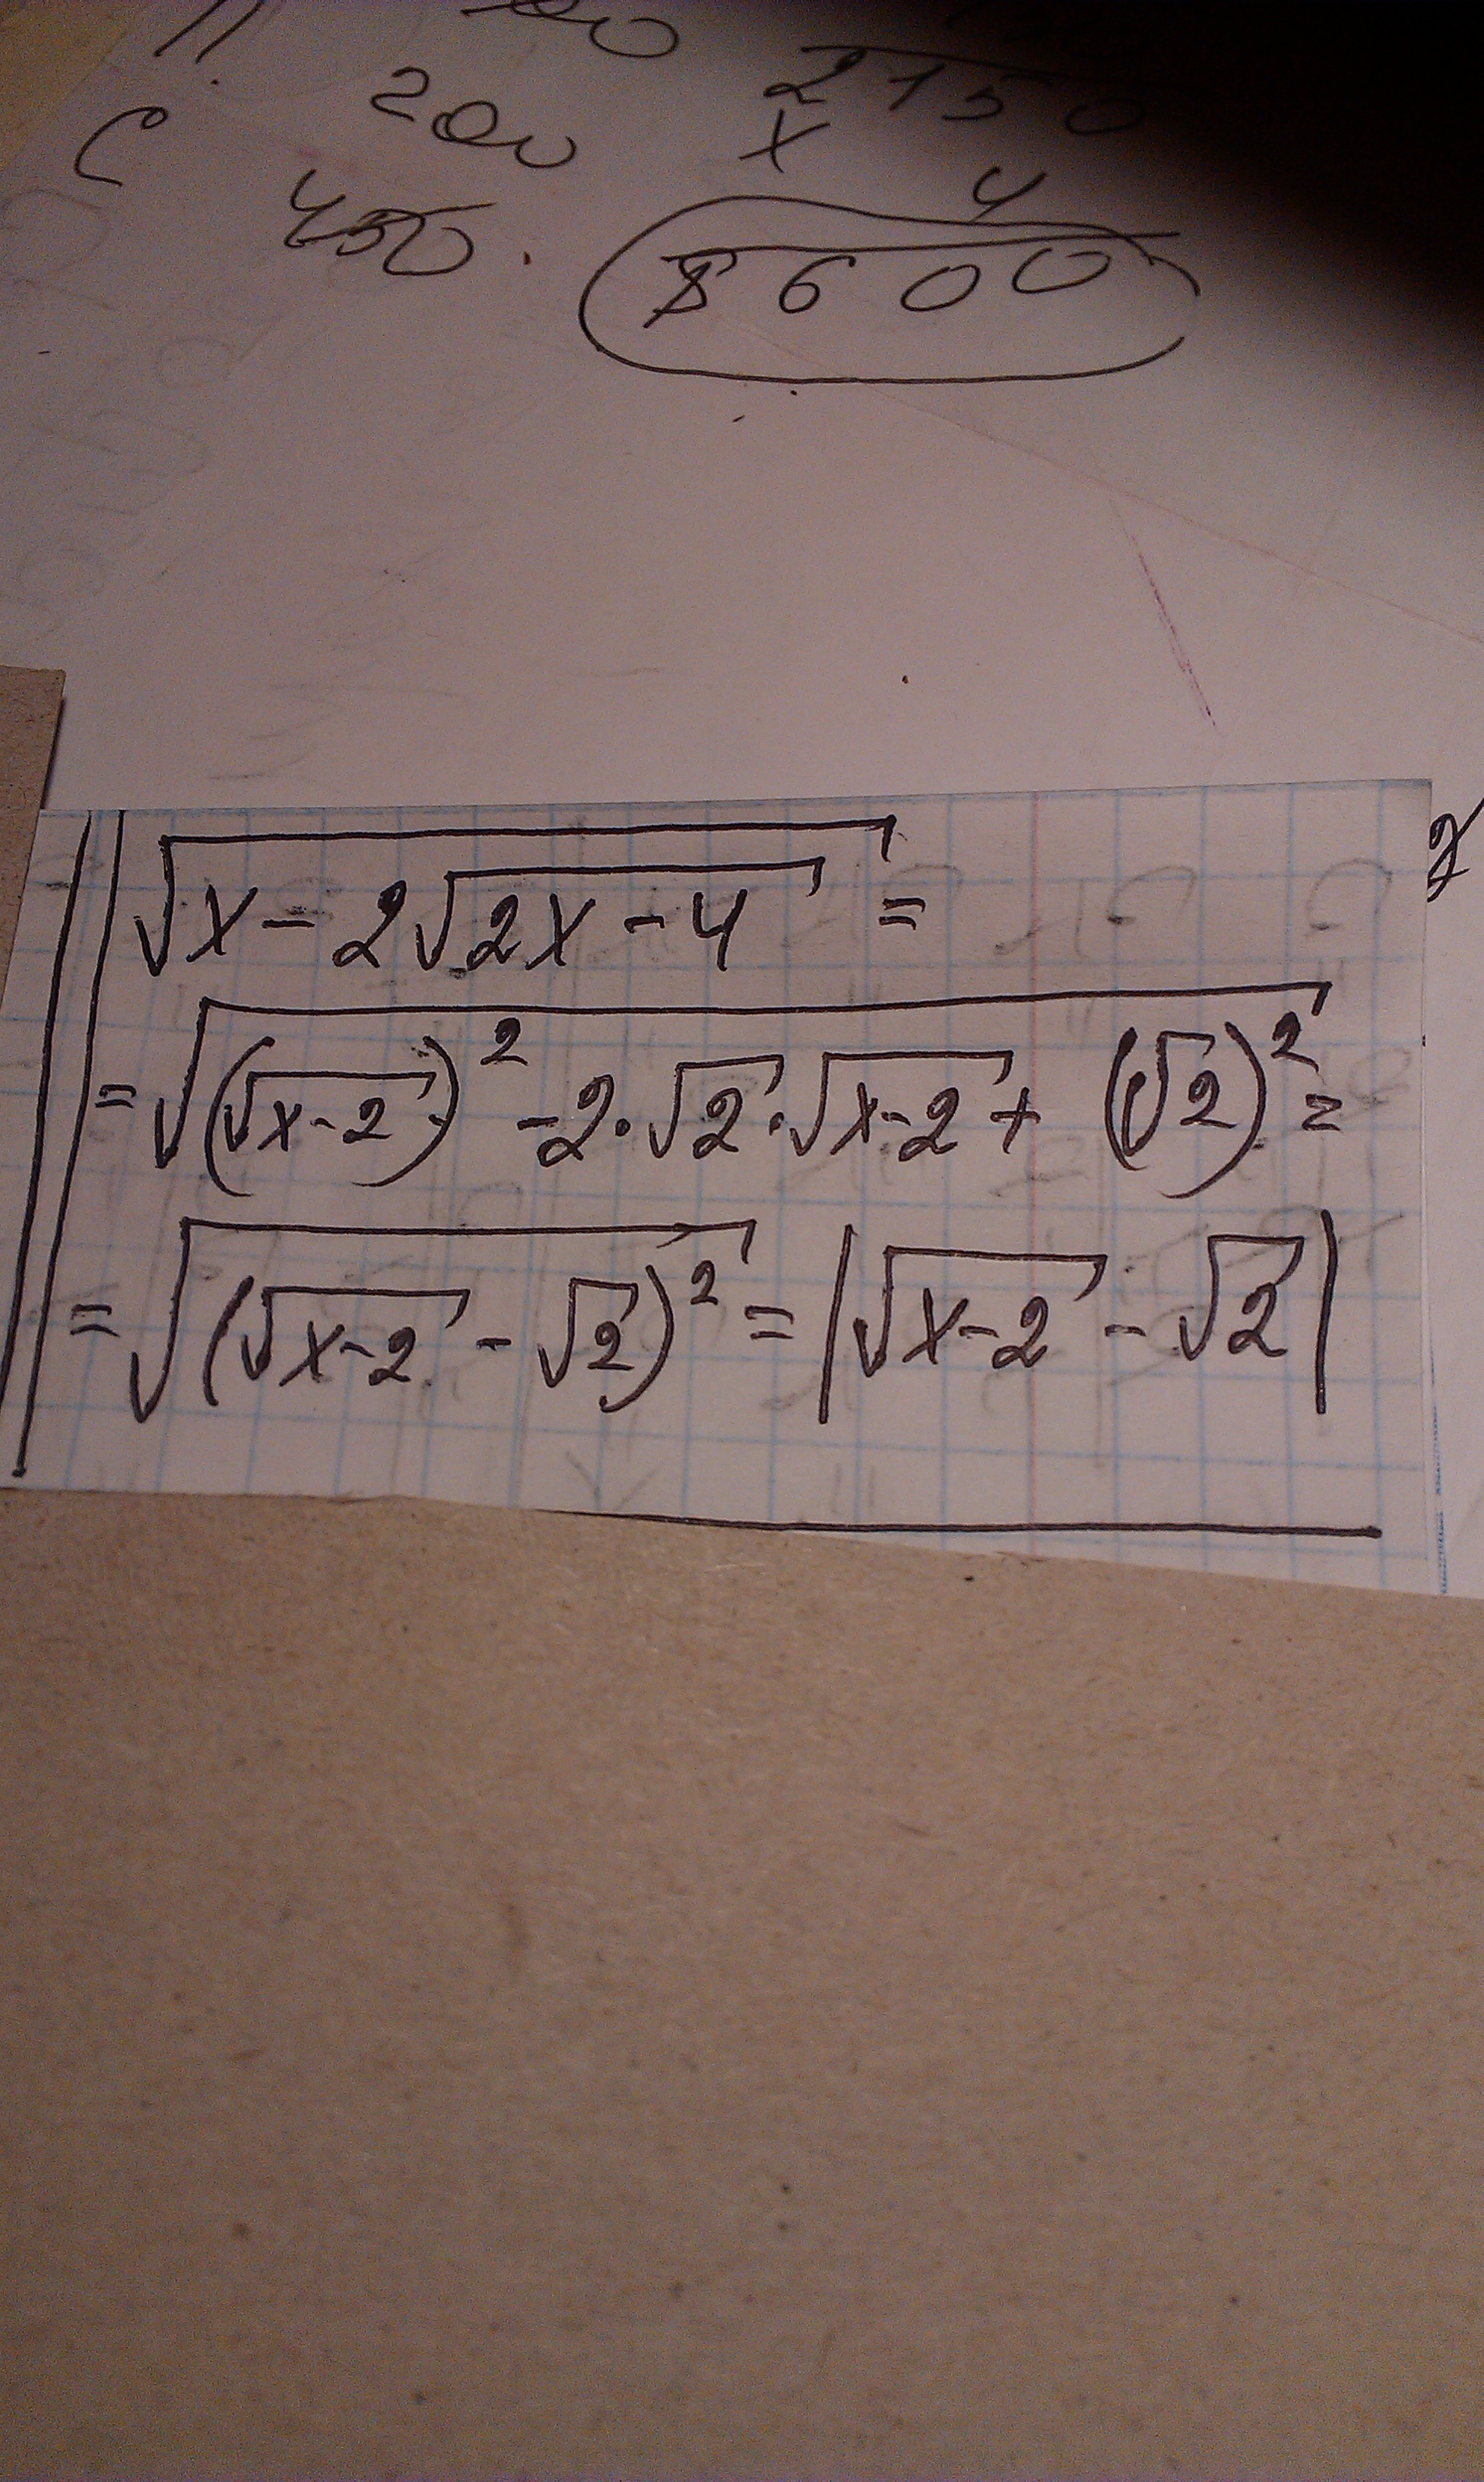 200
2150
С 200
× 4
450.
8600
√(x-2√(2x-4)) =
= √((√(x-2))² -2·√2·√(x-2) + (√2)²) =
= √((√(x-2) - √2)²) = |√(x-2) - √2|